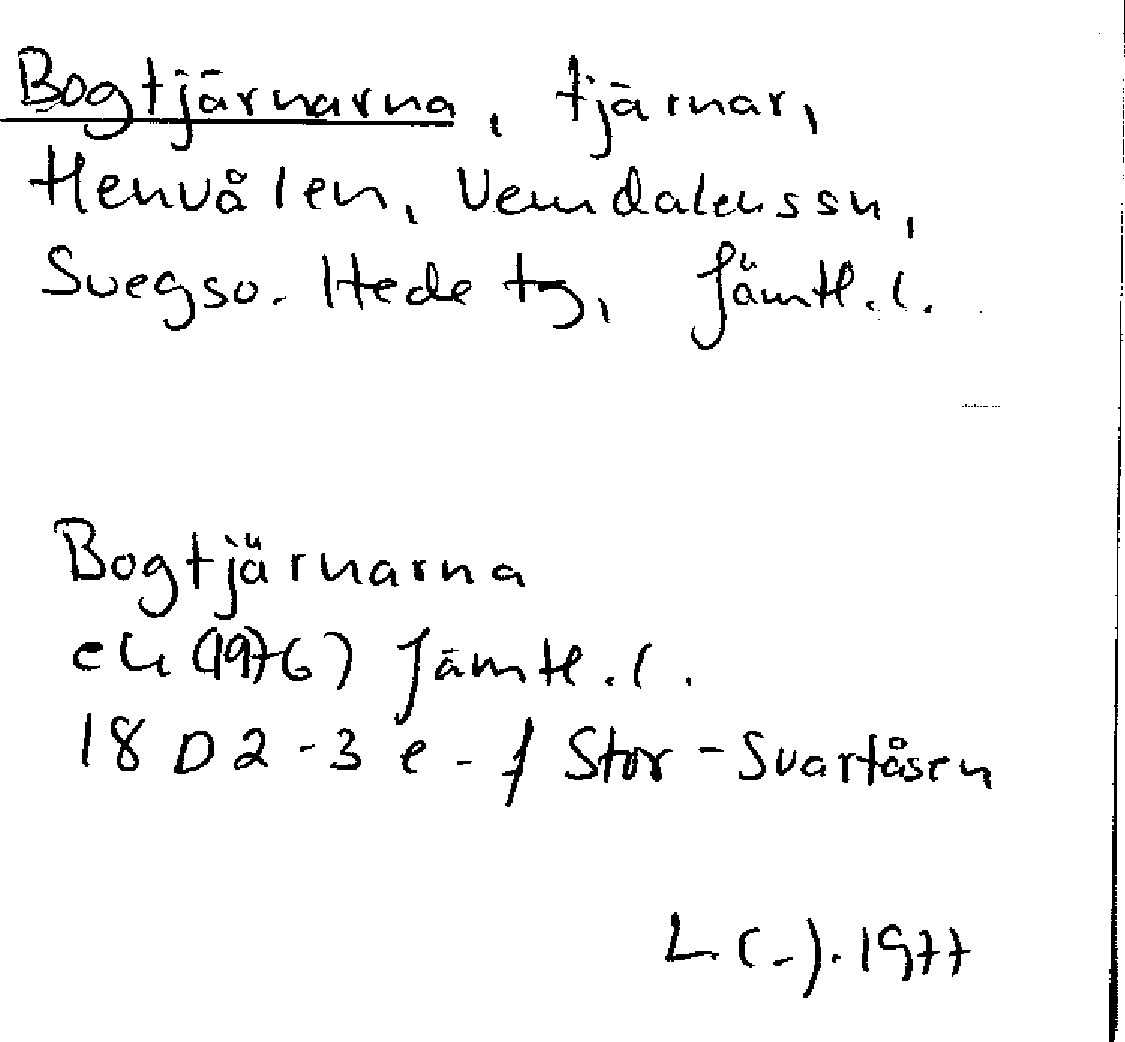 Bogtjärnarna, tjärnar,
Henvålen, Vemdalenssn,
Svegso. Hede tg, Jämtl.l.
Bogtjärnarna
ek (1976) Jämtl.l.
18 D 2-3 e-f Stor-Svartåsen
L(-).1977